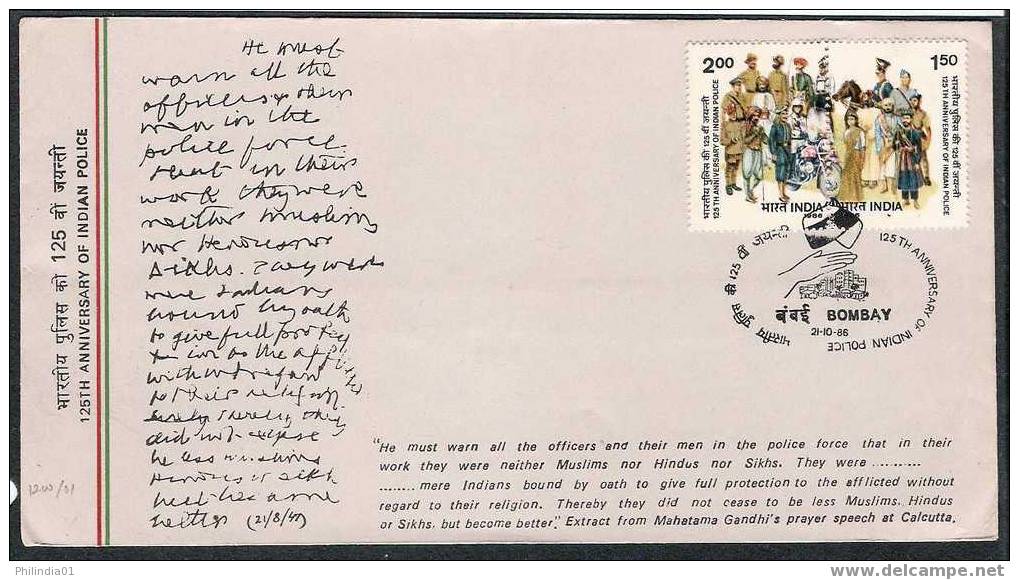 भारतीय पुलिस की 125 वीं जयन्ती
125TH ANNIVERSARY OF INDIAN POLICE
He must
warn all the
officers & their
men in the
police force
that in their
work they were
neither Muslims
nor Hindus nor
Sikhs. They were
mere Indians
bound by oath
to give full
with
did not
(21/8/47)
1200/01
2.00
भारतीय पुलिस की 125 वीं जयन्ती
125TH ANNIVERSARY OF INDIAN POLICE
भारत INDIA
1986
1.50
भारतीय पुलिस की 125 वीं जयन्ती
125TH ANNIVERSARY OF INDIAN POLICE
भारत INDIA
भारतीय पुलिस की 125 वीं जयन्ती
125TH ANNIVERSARY OF INDIAN POLICE
बंबई BOMBAY
21-10-86
"He must warn all the officers and their men in the police force that in their
work they were neither Muslims nor Hindus nor Sikhs. They were ..........
........ mere Indians bound by oath to give full protection to the afflicted without
regard to their religion. Thereby they did not cease to be less Muslims, Hindus
or Sikhs, but become better." Extract from Mahatama Gandhi's prayer speech at Calcutta.
Philindia01
delcampe.net